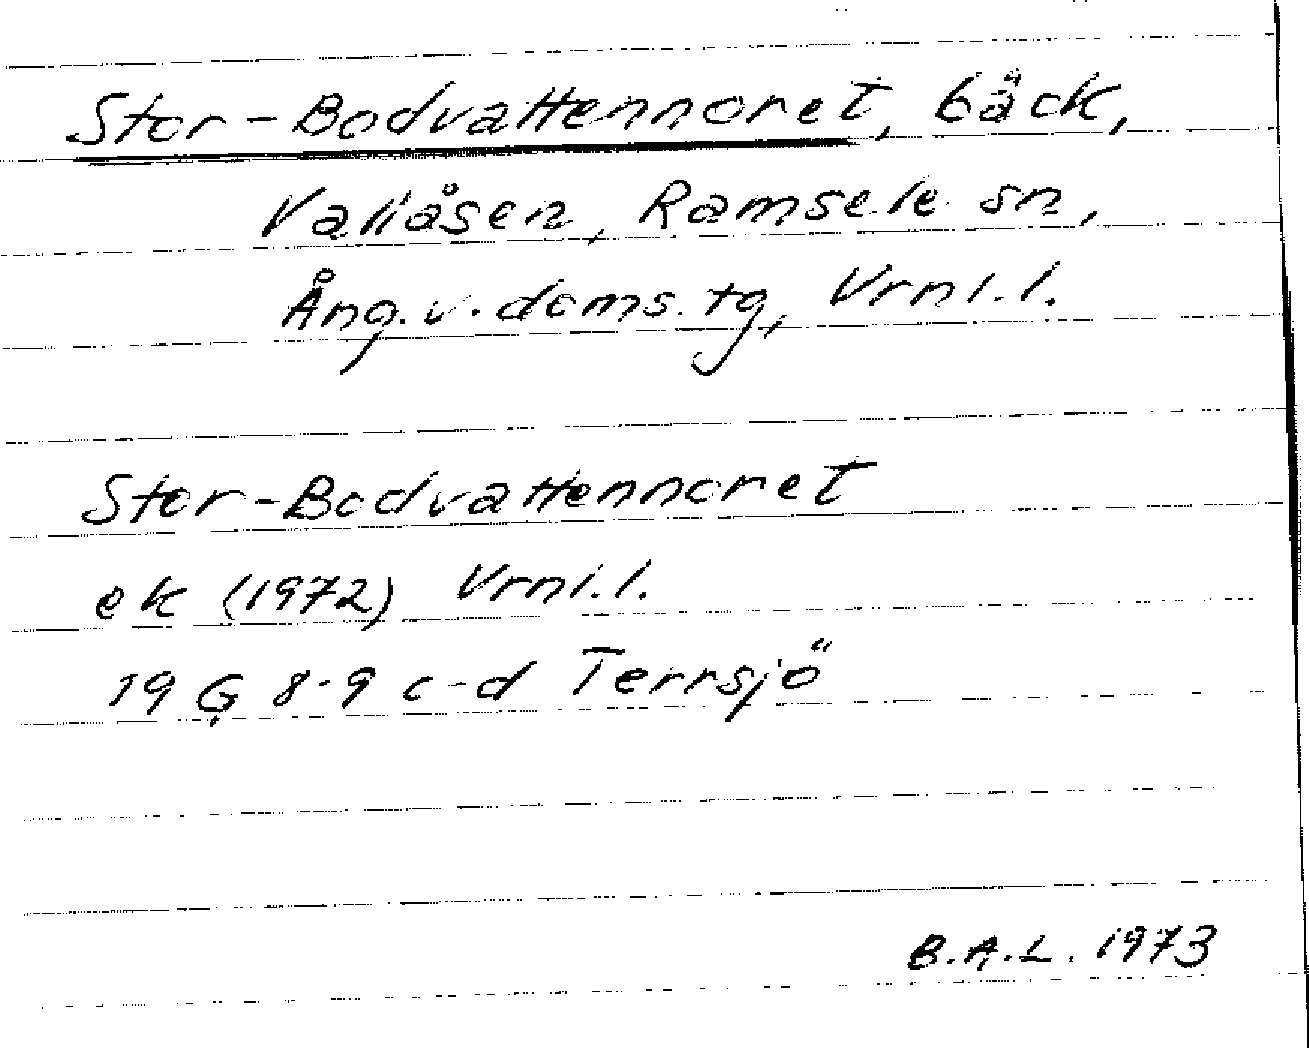 Stor-Bodvattennoret, bäck,
Valiåsen, Ramsele sn,
Ång.v. doms. tg, Vrnl.l.
Stor-Bodvattennoret
ek (1972) Vrnl.l.
19 G 8-9 c-d Terrsjö
B.A.L. 1973